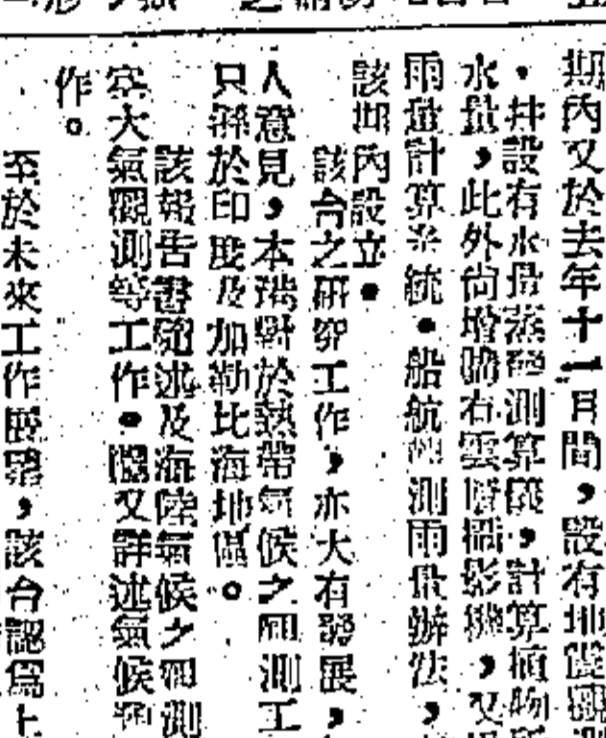 期內又於去年十一月間，設有地震觀測
，并設有水量蒸發測算儀，計算植物所
水量，此外尚增購有雲層攝影機，又
雨量計算系統。船航觀測雨量辦法，
該期內設立。
該台之研究工作，亦大有發展，
人意見，本港對於熱帶氣候之觀測工
只辦於印度及加勒比海地區。
該報告書隨述及海陸氣候之觀測
穿大氣觀測等工作。又詳述氣候
作。
至於未來工作，該台認爲上